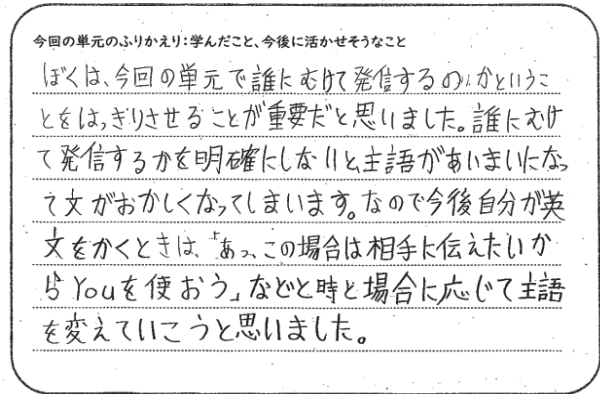 今回の単元のふりかえり：学んだこと、今後に活かせそうなこと
ぼくは、今回の単元で誰にむけて発信するのかというこ
とをはっきりさせることが重要だと思いました。誰にむけ
て発信するかを明確にしないと主語があいまいになっ
て文がおかしくなってしまいます。なので今後自分が英
文をかくときは、「あっ、この場合は相手に伝えたいか
らYouを使おう」などと時と場合に応じて主語
を変えていこうと思いました。